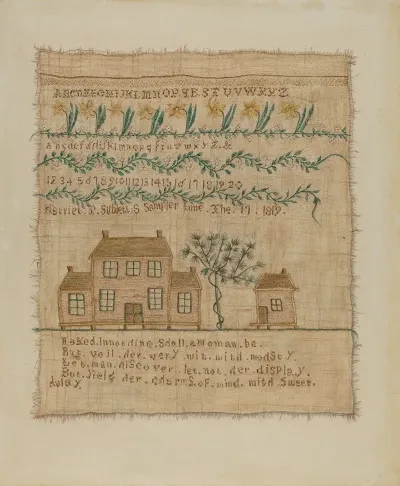 ABCDEFGHIJKLMNOPQRSTUVWXYZ
abcdefghijklmnopqrstuvwxyz.&
1234567891011121314151617181920
Harriet Sampler June The 17 1819.
Naked a Woman be.
But Veil der very wit witd modsty.
Let man discover let not der display.
But Yield der of mind witd Sweet
delay.